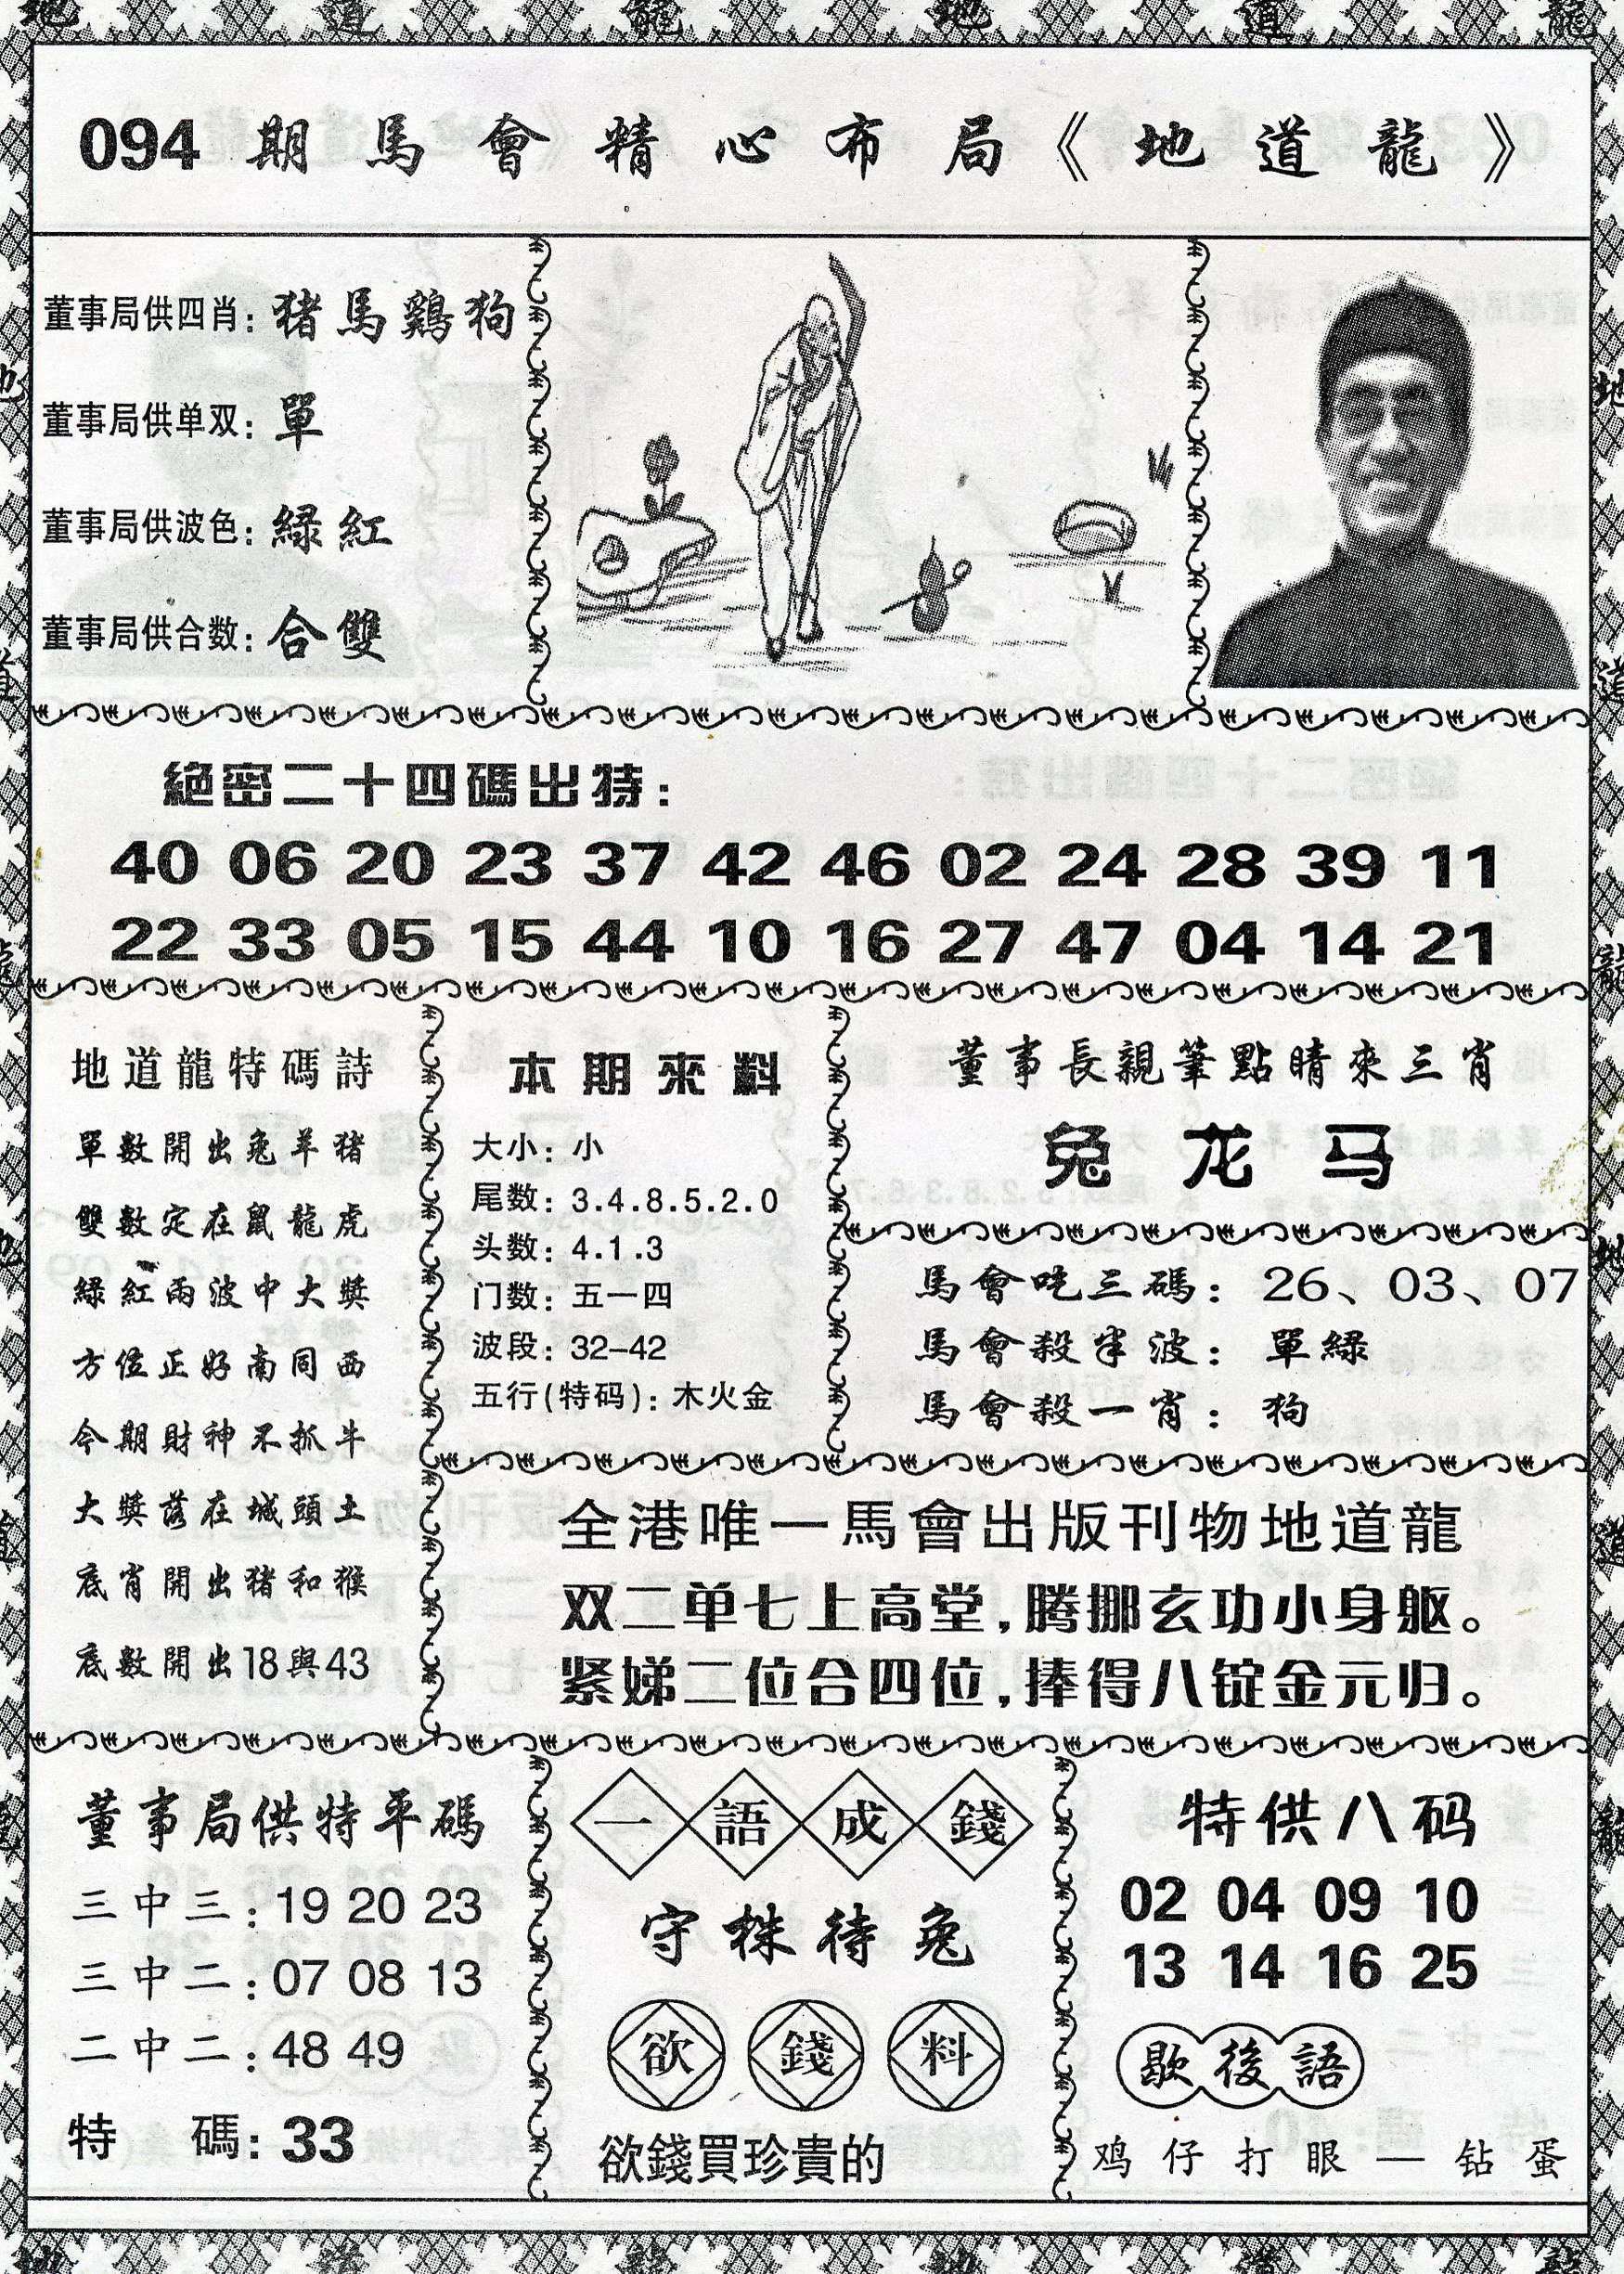 094期馬會精心布局《地道龍》
董事局供四肖：猪馬鷄狗
董事局供单双：單
董事局供波色：緑紅
董事局供合数：合雙
絕密二十四碼出特：
40 06 20 23 37 42 46 02 24 28 39 11
22 33 05 15 44 10 16 27 47 04 14 21
地道龍特碼詩
單數開出兔羊猪
雙數定在鼠龍虎
緑紅兩波中大獎
方位正好南同西
今期財神不抓牛
大獎落在城頭土
底肖開出猪和猴
底數開出18與43
本期來料
大小：小
尾数：3.4.8.5.2.0
头数：4.1.3
门数：五一四
波段：32-42
五行(特码)：木火金
董事長親筆點睛來三肖
兔龙马
馬會吃三碼：26、03、07
馬會殺半波：單緑
馬會殺一肖：狗
全港唯一馬會出版刊物地道龍
双二单七上高堂,腾挪玄功小身躯。
紧娣二位合四位,捧得八锭金元归。
董事局供特平碼
三中三:19 20 23
三中二:07 08 13
二中二:48 49
特碼:33
一語成錢
守株待兔
欲錢料
欲錢買珍貴的
特供八码
02 04 09 10
13 14 16 25
歇後語
鸡仔打眼—钻蛋